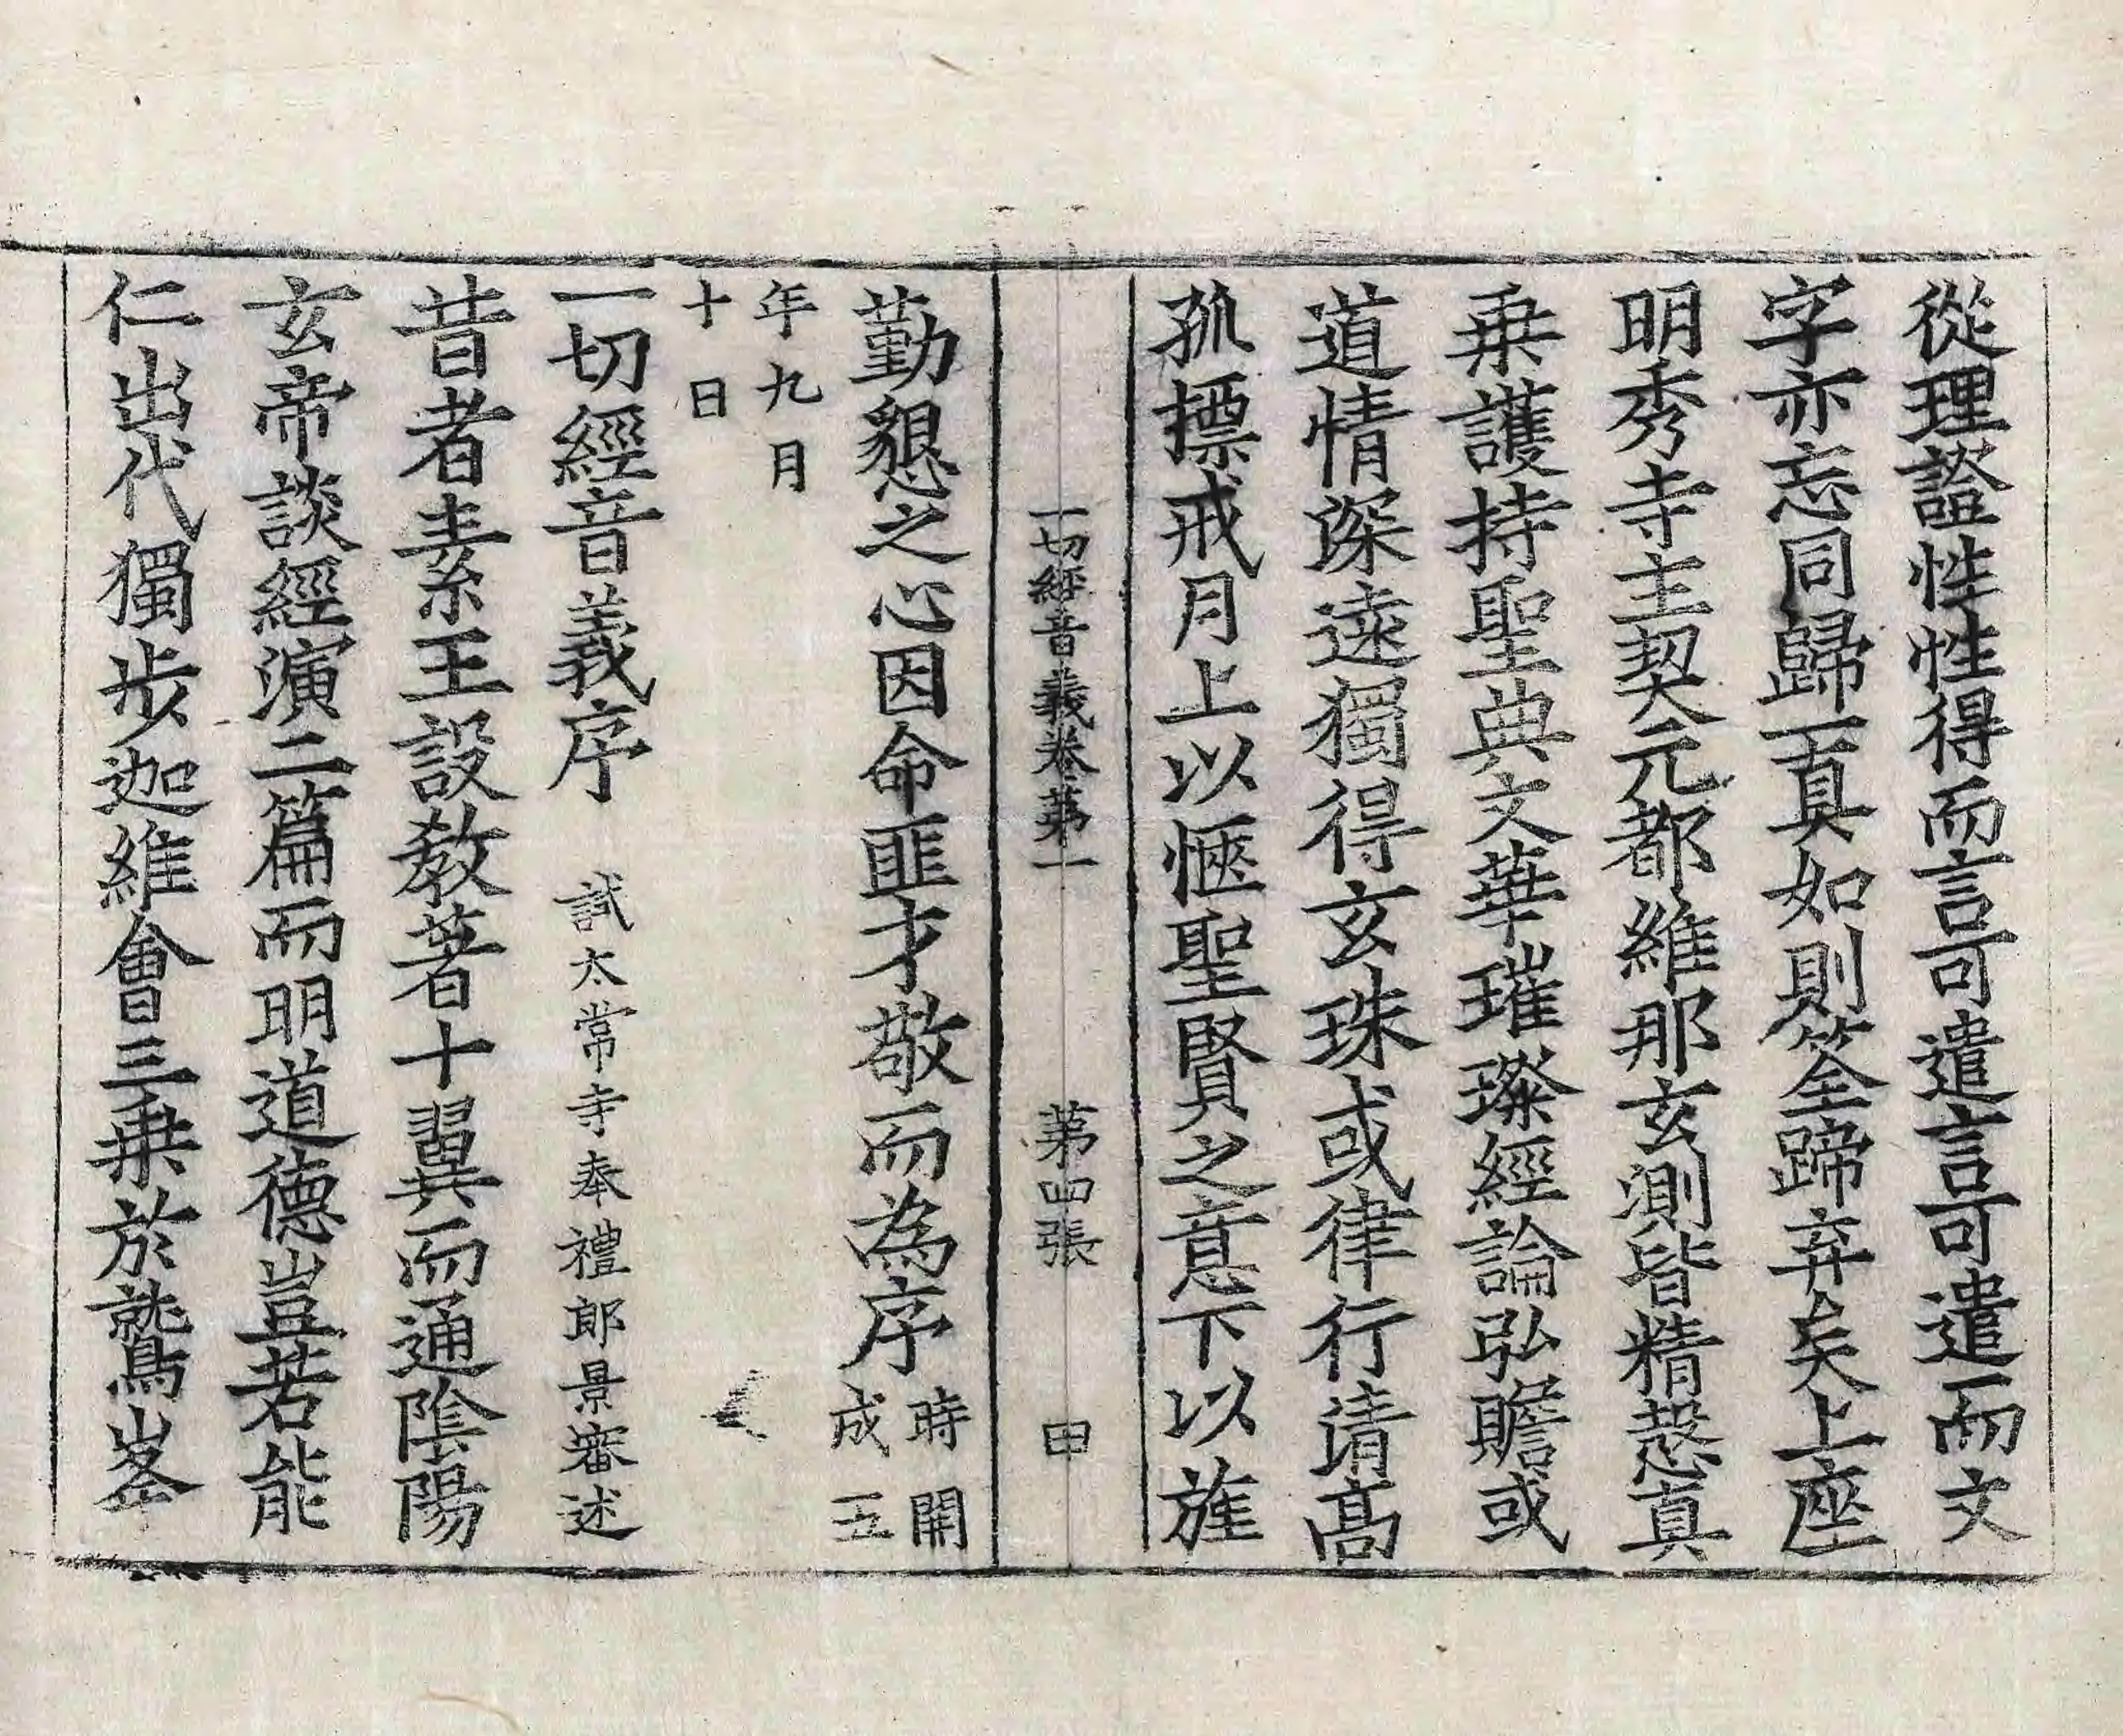 從理證性性得而言可遣言可遣而文
字亦忘同歸一真如則筌蹄弃矣上座
明秀寺主契元都維那玄測皆精慤真
乗護持聖典文華璀璨經論弘贍或
道情深遠獨得玄珠或律行清高
孤摽戒月上以愜聖賢之意下以旌
一切經音義卷第一 第四張 甲
勤懇之心因命匪才敬而為序時開
成五
年九月
十日
一切經音義序 試太常寺奉禮郎景審述
昔者素王設教著十翼而通陰陽
玄帝談經演二篇而明道德豈若能
仁出代獨步迦維會三乗於鷲峯